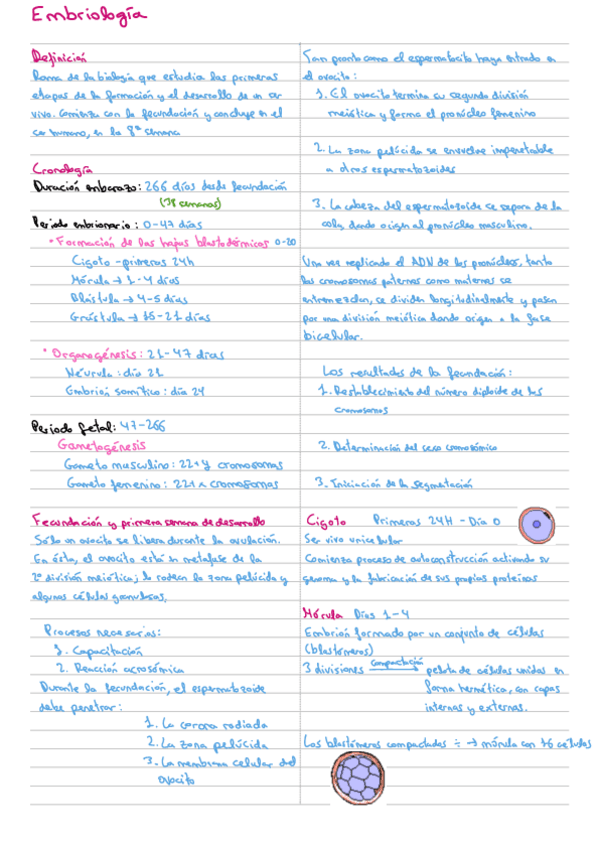 Embriología
Definición
Rama de la biología que estudia las primeras
etapas de la formación y el desarrollo de un ser
vivo. Comienza con la fecundación y concluye en el
ser humano, en la 8ª semana
Cronología
Duración embarazo: 266 días desde fecundación
(38 semanas)
Periodo embrionario: 0-47 días
• Formación de las hojas blastodérmicas 0-20
Cigoto - primeras 24h
Mórula → 1-4 días
Blástula → 4-5 días
Grástula → 15-21 días
• Organogénesis: 21-47 días
Néurula: día 21
Embrión somítico: día 24
Periodo fetal: 47-266
Gametogénesis
Gameto masculino: 22+y cromosomas
Gameto femenino: 22+x cromosomas
Fecundación y primera semana de desarrollo
Sólo un ovocito se libera durante la ovulación.
En ésta, el ovocito está en metafase de la
2ª división meiótica; lo rodean la zona pelúcida y
algunas células granulosas.
Procesos necesarios:
1. Capacitación
2. Reacción acrosómica
Durante la fecundación, el espermatozoide
debe penetrar:
1. La corona radiada
2. La zona pelúcida
3. La membrana celular del
ovocito
Tan pronto como el espermatocito haya entrado en
el ovocito:
1. El ovocito termina su segunda división
meiótica y forma el pronúcleo femenino
2. La zona pelúcida se envuelve impenetrable
a otros espermatozoides
3. La cabeza del espermatozoide se separa de la
cola, dando origen al pronúcleo masculino.
Una vez replicado el ADN de los pronúcleos, tanto
los cromosomas paternos como maternos se
entremezclan, se dividen longitudinalmente y pasan
por una división meiótica dando origen a la fase
bicelular.
Los resultados de la fecundación:
1. Restablecimiento del número diploide de los
cromosomas
2. Determinación del sexo cromosómico
3. Iniciación de la segmentación
Cigoto Primeras 24H - Día 0
Ser vivo unicelular
Comienza proceso de autoconstrucción activando su
genoma y la fabricación de sus propias proteínas
Mórula Días 1-4
Embrión formado por un conjunto de células
(blastómeros)
3 divisiones compactación pelota de células unidas en
forma hermética, con capas
internas y externas.
Los blastómeros compactados ÷ → mórula con 16 células